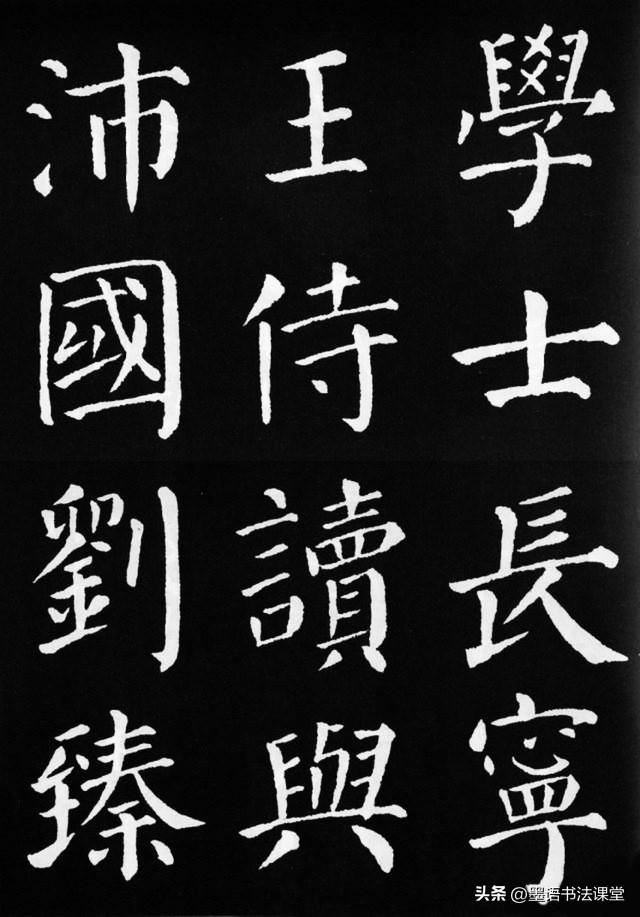 學士長寧
王侍讀與
沛國劉臻
头条 @墨语书法课堂